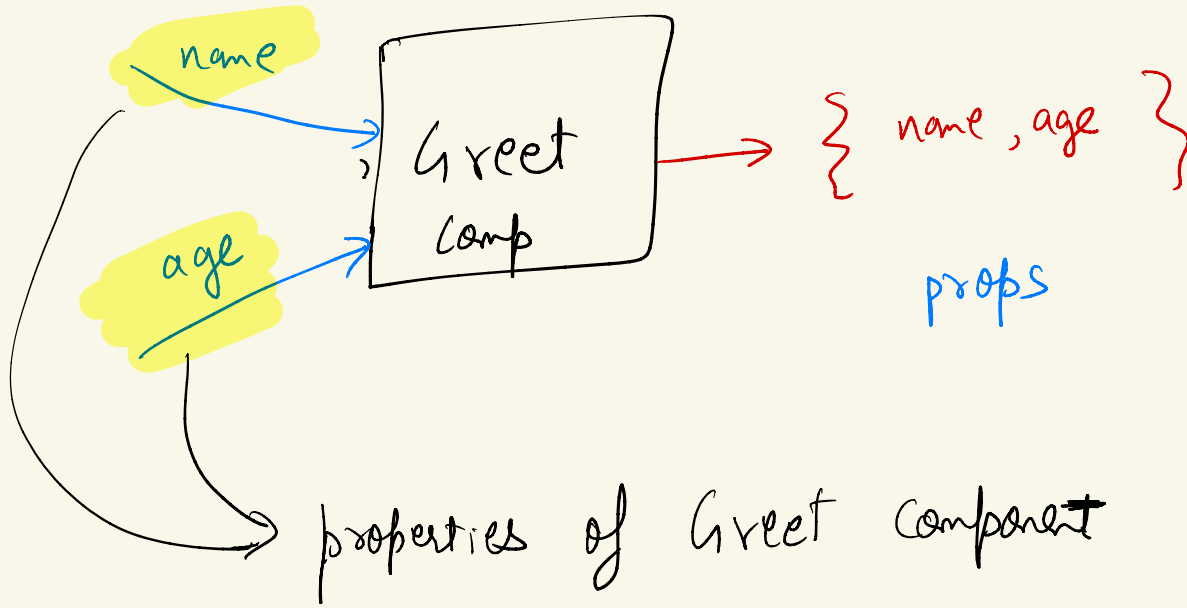 name
Greet
comp
{ name, age }
age
props
properties of Greet component